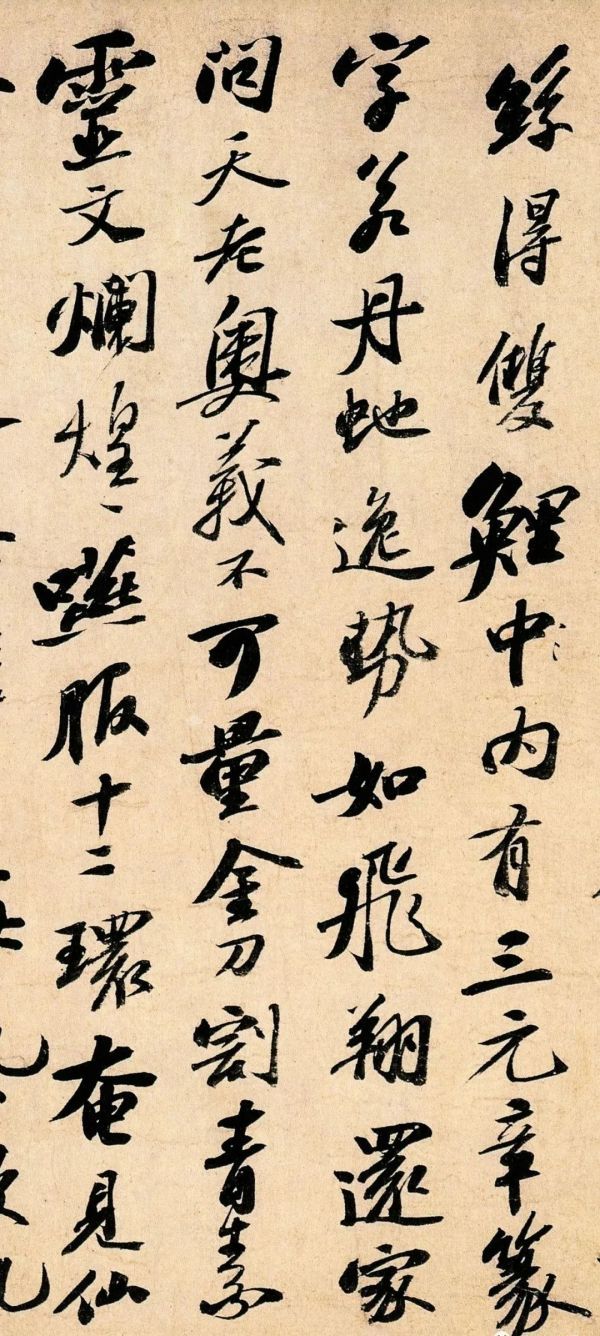 絲得雙鯉中內有三元章篆
字若丹虵逸勢如飛翔還家
問天老奧義不可量金刀割青素
靈文爛煌〻嚥服十二環奄見仙